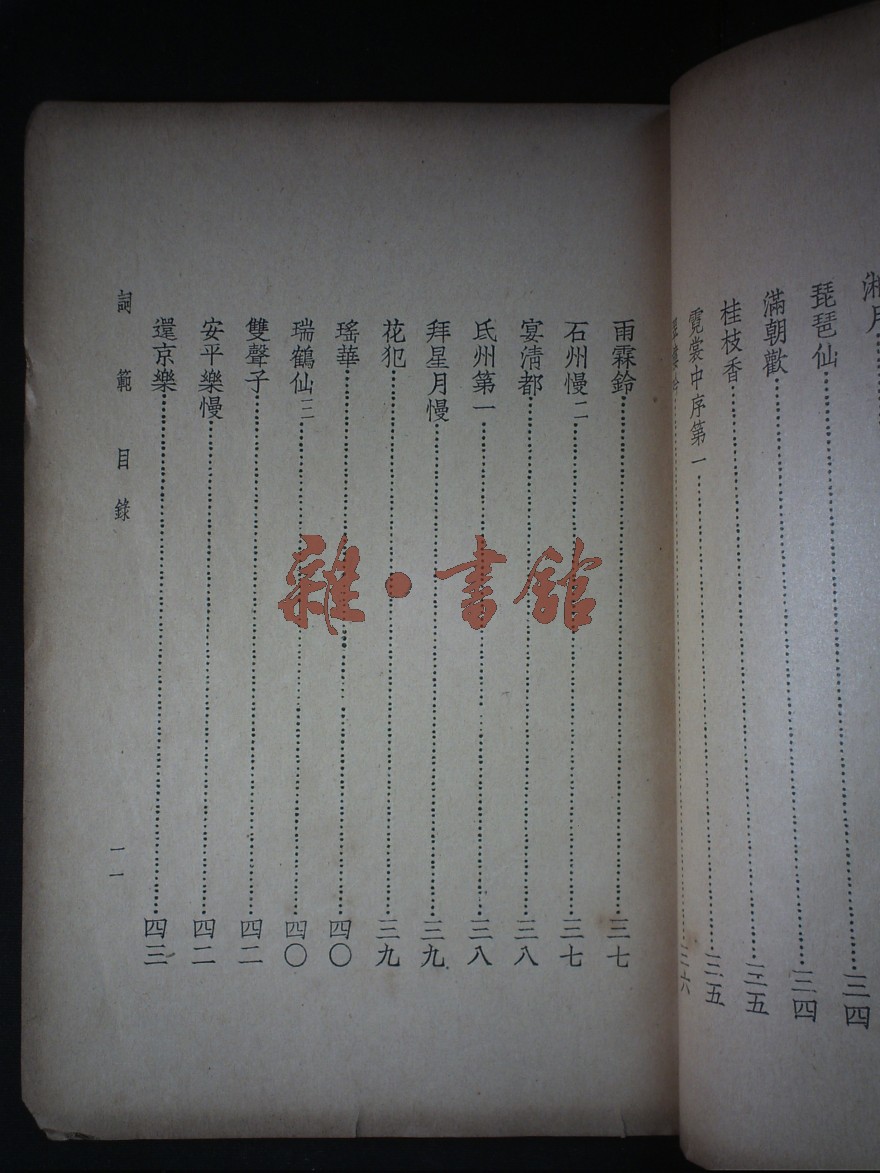 湘月……三四
琵琶仙……三四
滿朝歡……三五
桂枝香……三五
霓裳中序第一……三六
雨霖鈴……三七
石州慢二……三七
宴清都……三八
氐州第一……三八
拜星月慢……三九
花犯……三九
瑤華……四〇
瑞鶴仙三……四〇
雙聲子……四二
安平樂慢……四二
還京樂……四三
詞範 目錄
一一
雜·書館